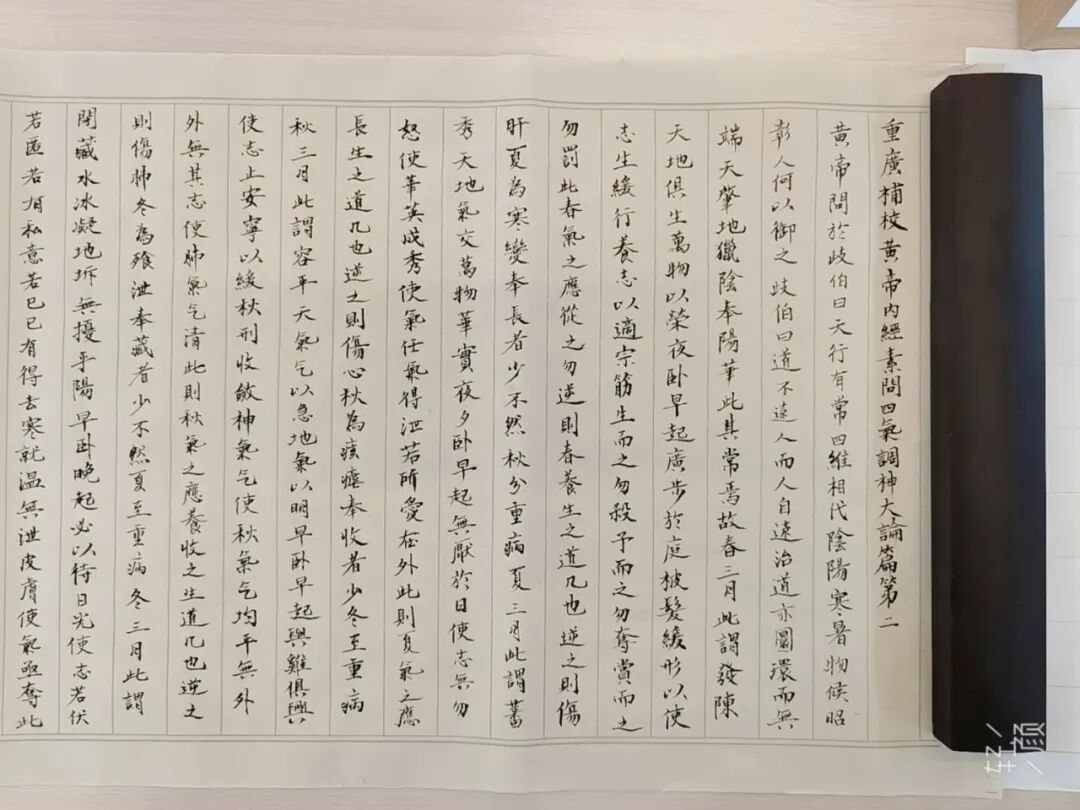 重廣補校黃帝內經素問四氣調神大論篇第二
黃帝問於歧伯曰天行有常四維相代陰陽寒暑物候昭
彰人何以御之歧伯曰道不遠人而人自遠治道亦圜環而無
端天肇地獵陰奉陽華此其常焉故春三月此謂發陳
天地俱生萬物以榮夜卧早起廣步於庭被髮緩形以使
志生緩行養志以適宗筋生而之勿殺予而之勿奪賞而之
勿罰此春氣之應從之勿逆則春養生之道几也逆之則傷
肝夏為寒變奉長者少不然秋分重病夏三月此謂蕃
秀天地氣交萬物華實夜夕卧早起無厭於日使志無勿
怒使華英成秀使氣任氣得泄若所愛在外此則夏氣之應
長生之道几也逆之則傷心秋為痎瘧奉收者少冬至重病
秋三月此謂容平天氣乞以急地氣以明早卧早起與雞俱興
使志止安寧以緩秋刑收斂神氣乞使秋氣乞均平無外
外無其志使肺氣乞清此則秋氣之應養收之生道几也逆之
則傷肺冬為飱泄奉藏者少不然夏至重病冬三月此謂
閉藏水冰凝地坼無擾乎陽早卧晚起必以待日光使志若伏
若匿若有私意若已已有得去寒就溫無泄皮膚使氣亟奪此
轻颜